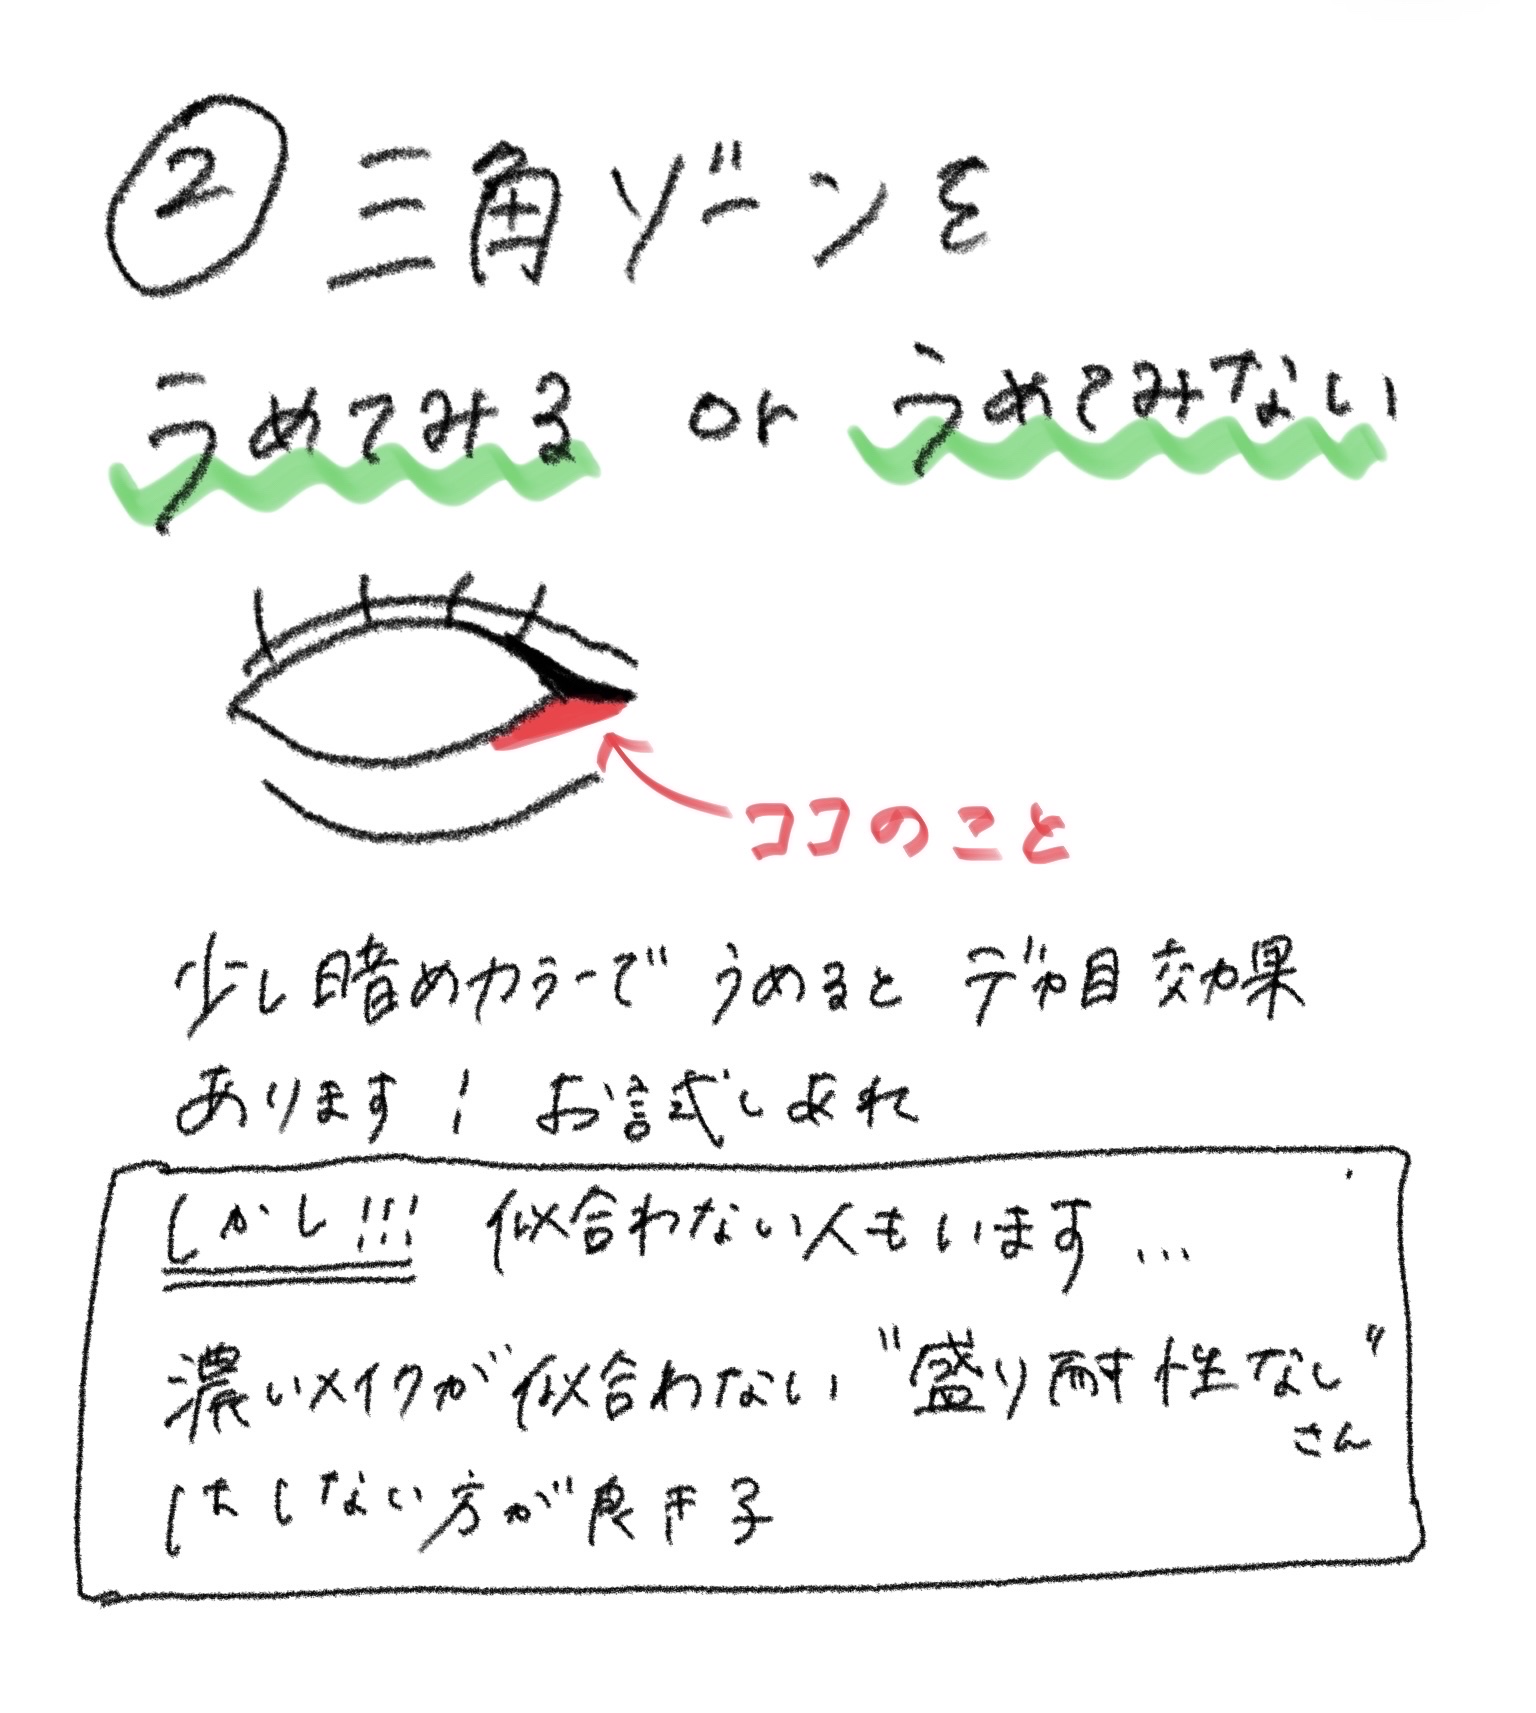 ② 三角ゾーンを
うめてみる or うめてみない
ココのこと
少し暗めカラーで うめると デカ目効果
あります! お試しあれ
しかし!!! 似合わない人もいます…
濃いメイクが似合わない "盛り耐性なし"
さん
はしない方が良き子